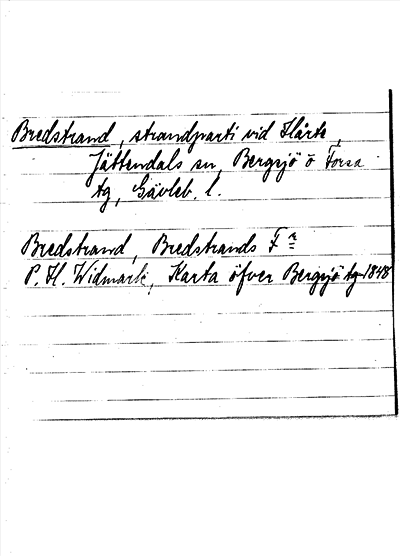 Bredstrand, strandparti vid Hårte,
Jättendals sn, Bergsjö o Forsa
tg, Gävleb. l.
Bredstrand, Bredstrands F
P. H. Widmark, Karta öfver Bergsjö tg 1848